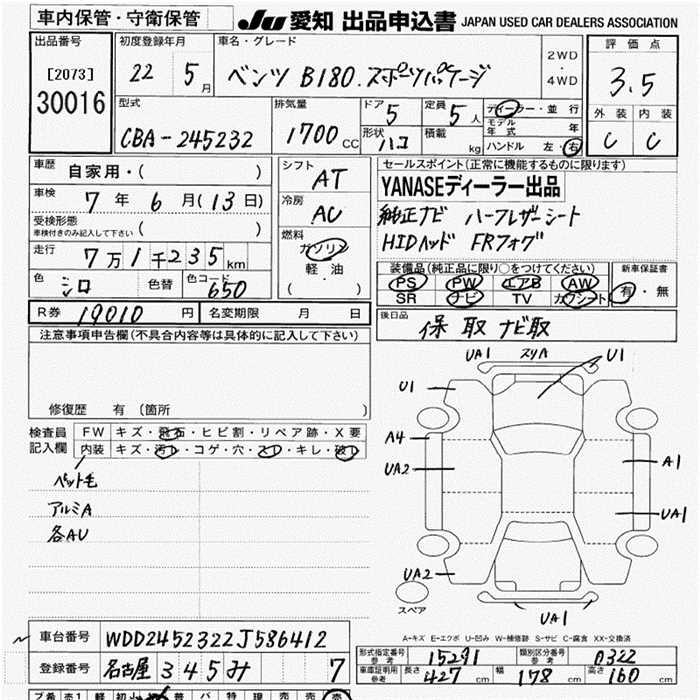 車内保管・守衛保管
JU 愛知 出品申込書 JAPAN USED CAR DEALERS ASSOCIATION
出品番号
[2073]
30016
初度登録年月
22 5月
車名・グレード
ベンツ B180.スポーツパッケージ
2WD
・
4WD
評価点
3.5
外装 内装
C C
型式
CBA-245232
排気量
1700cc
ドア
5
形状
ハコ
定員
5人
積載
kg
ディーラー・並行
モデル年式 年
ハンドル 左・右
車歴 自家用・( )
車検 7年 6月(13日)
受検形態
車検付きのみ記入して下さい ( )
走行 7万1千235km
色 シロ 色替 色コード 650
シフト
AT
冷房
AC
燃料
ガソリン
軽油
( ・ )
セールスポイント(正常に機能するものに限ります)
YANASEディーラー出品
純正ナビ ハーフレザーシート
HIDヘッド FRフォグ
装備品(純正品に限り○をつけてください)
PS PW エアB AW
SR ナビ TV カワシート
新車保証書
有・無
R券 19010円 名変期限 月 日
後日品
保 取 ナビ取
注意事項申告欄(不具合内容等は具体的に記入して下さい)
修復歴 有(箇所 )
検査員
記入欄
FW キズ・飛石・ヒビ割・リペア跡・X要
内装 キズ・汚レ・コゲ・穴・スレ・キレ・破レ
ペット毛
アルミA
各AU
UA1 スリA U1
U1
A4
UA2
A1
UA1
UA2
スペア
UA1
A-キズ E-エクボ U-凹み W-補修跡 S-サビ C-腐食 XX-交換済
車台番号 WDD2452322J586412
登録番号 名古屋 345み 7
形式指定番号
参考 15291
類別区分番号
参考 0322
車庫証明用
参考 長さ 427cm 幅 178cm 高さ 160cm